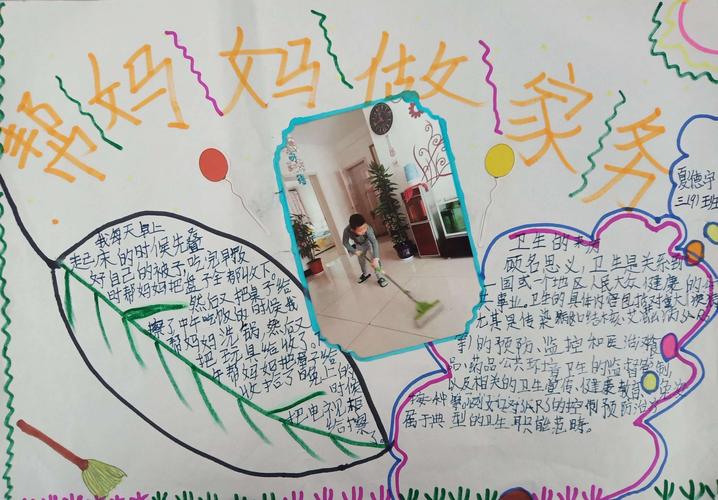 帮妈妈做家务
夏德宇
三(9)班
我每天早上
起床的时候先叠
好自己的被子,吃完早饭
时帮妈妈把盘子全都收下。
然后又把桌子给
擦了。中午吃饭的时候我
帮妈妈洗锅,然后又
把玩具给收了。下
午帮妈妈把房子给
收拾了。晚上的
时候
把电视柜
给擦
了。
卫生的来
顾名思义,卫生是关系到
一国或一个地区人民大众健康的
事业。卫生的具体内容包括对重大疾病
尤其是传染病如结核、艾滋病
的预防、监控和医治
品、药品公共环境卫生的监督
以及相关的卫生宣传、健康教育
对SARS的控制预防治
属于典型的卫生职能范畴。